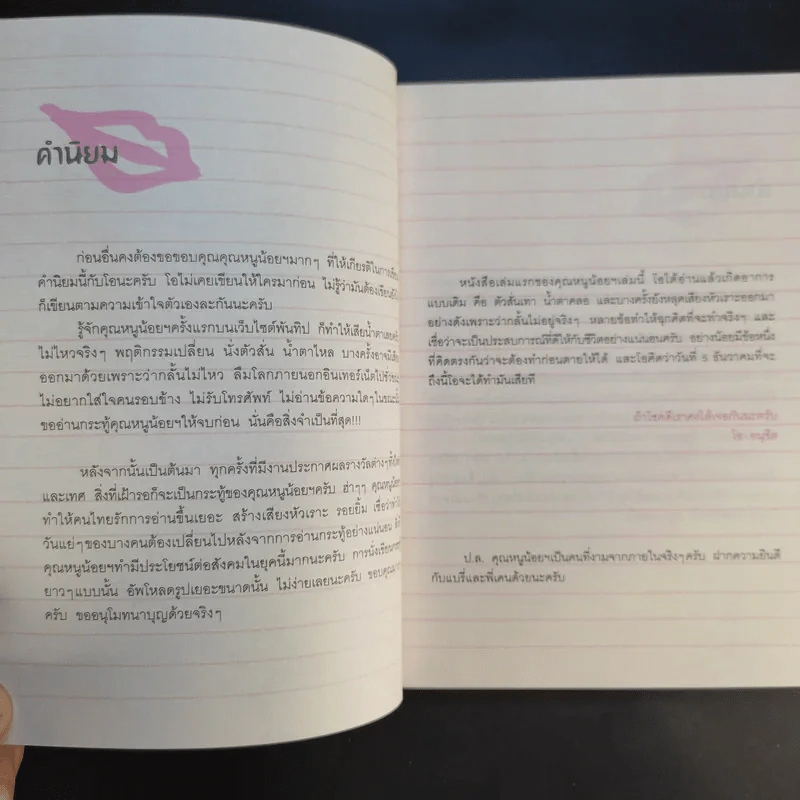 คำนิยม
ก่อนอื่นคงต้องขอขอบคุณคุณหนูน้อยฯมากๆ ที่ให้เกียรติในการเขียน
คำนิยมนี้กับโอนะครับ โอไม่เคยเขียนให้ใครมาก่อน ไม่รู้ว่ามันต้องเขียน
ก็เขียนตามความเข้าใจตัวเองละกันนะครับ
รู้จักคุณหนูน้อยฯครั้งแรกบนเว็บไซต์พันทิป ก็ทำให้เสียน้ำตาเลยครับ
ไม่ไหวจริงๆ พฤติกรรมเปลี่ยน นั่งตัวสั่น น้ำตาไหล บางครั้งอาจมีเสียง
ออกมาด้วยเพราะว่ากลั้นไม่ไหว ลืมโลกภายนอกอินเทอร์เน็ตไปชั่วขณะ
ไม่อยากใส่ใจคนรอบข้าง ไม่รับโทรศัพท์ ไม่อ่านข้อความใดๆในขณะนั้น
ขออ่านกระทู้คุณหนูน้อยฯให้จบก่อน นั่นคือสิ่งจำเป็นที่สุด!!!
หลังจากนั้นเป็นต้นมา ทุกครั้งที่มีงานประกาศผลรางวัลต่างๆ
และเทศ สิ่งที่เฝ้ารอก็จะเป็นกระทู้ของคุณหนูน้อยฯครับ ฮ่าๆๆ คุณหนูน้อยฯ
ทำให้คนไทยรักการอ่านขึ้นเยอะ สร้างเสียงหัวเราะ รอยยิ้ม เชื่อว่า
วันแย่ๆของบางคนต้องเปลี่ยนไปหลังจากการอ่านกระทู้อย่างแน่นอน
คุณหนูน้อยฯทำมีประโยชน์ต่อสังคมในยุคนี้มากนะครับ การนั่งเขียน
ยาวๆแบบนั้น อัพโหลดรูปเยอะขนาดนั้น ไม่ง่ายเลยนะครับ ขอบคุณมาก
ครับ ขออนุโมทนาบุญด้วยจริงๆ
หนังสือเล่มแรกของคุณหนูน้อยฯเล่มนี้ โอได้อ่านแล้วเกิดอาการ
แบบเดิม คือ ตัวสั่นเทา น้ำตาคลอ และบางครั้งยังหลุดเสียงหัวเราะออกมา
อย่างดังเพราะว่ากลั้นไม่อยู่จริงๆ หลายข้อทำให้ฉุกคิดที่จะทำจริงๆ และ
เชื่อว่าจะเป็นประสบการณ์ที่ดีให้กับชีวิตอย่างแน่นอนครับ อย่างน้อยมีข้อหนึ่ง
ที่คิดตรงกันว่าจะต้องทำก่อนตายให้ได้ และโอคิดว่าวันที่ 5 ธันวาคมที่จะ
ถึงนี้โอจะได้ทำมันเสียที
ถ้าโชคดีเราคงได้เจอกันนะครับ
โอ-อนุชิต
ป.ล. คุณหนูน้อยฯเป็นคนที่งามจากภายในจริงๆครับ ฝากความยินดี
กับแบรี่และพี่เคนด้วยนะครับ